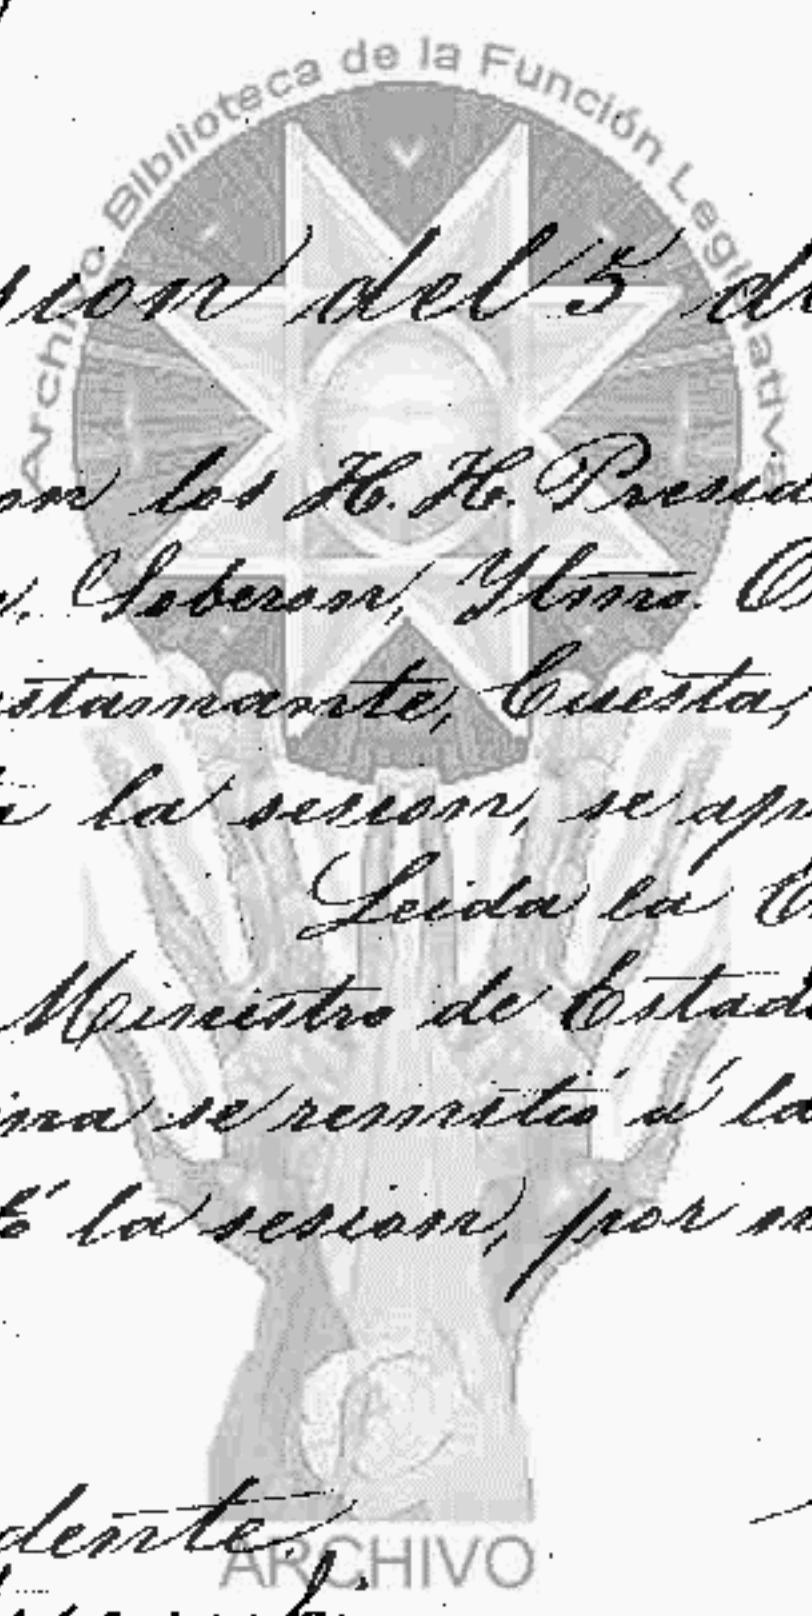 Archivo Biblioteca de la Función Legislativa
sion del 5 de
on los H. H. Presid
Soberon, Ylmo. O
stamante, Cuesta,
la sesion, se apr
Leida la
Ministro de Estado
ma se remitió á la
la sesion, por m
dente.
ARCHIVO